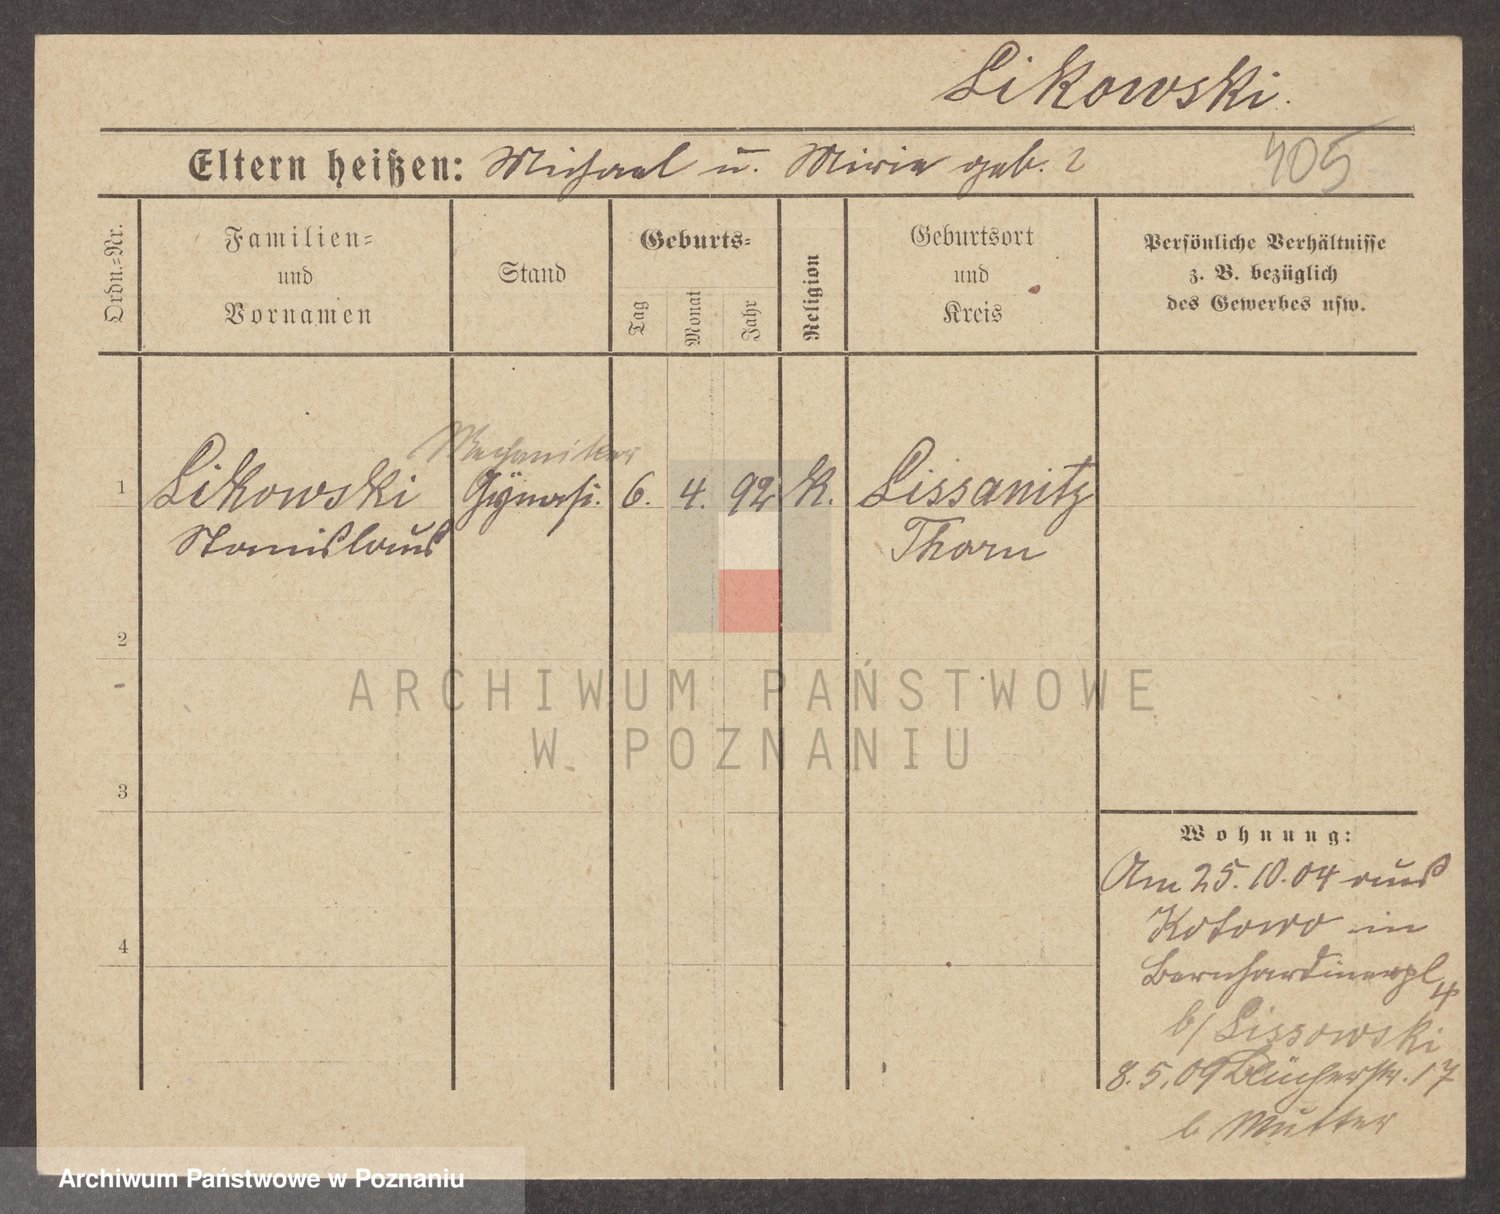 Likowski.
Eltern heißen: Michael u. Miria geb. ?
405
Ordn.-Nr.
Familien-
und
Vornamen
Stand
Geburts-
Tag
Monat
Jahr
Religion
Geburtsort
und
Kreis
Persönliche Verhältnisse
z. B. bezüglich
des Gewerbes usw.
Mechaniker
1 Likowski Gymnas. 6. 4. 92 K. Lissanitz
Stanislaus Thorn
2
3
4
ARCHIWUM PAŃSTWOWE
W POZNANIU
Wohnung:
Am 25.10.04 aus
Kotowo in
Bernhardinerpl 4
b/ Lissowski
8.5.09 Blücherstr. 17
b Mutter
Archiwum Państwowe w Poznaniu